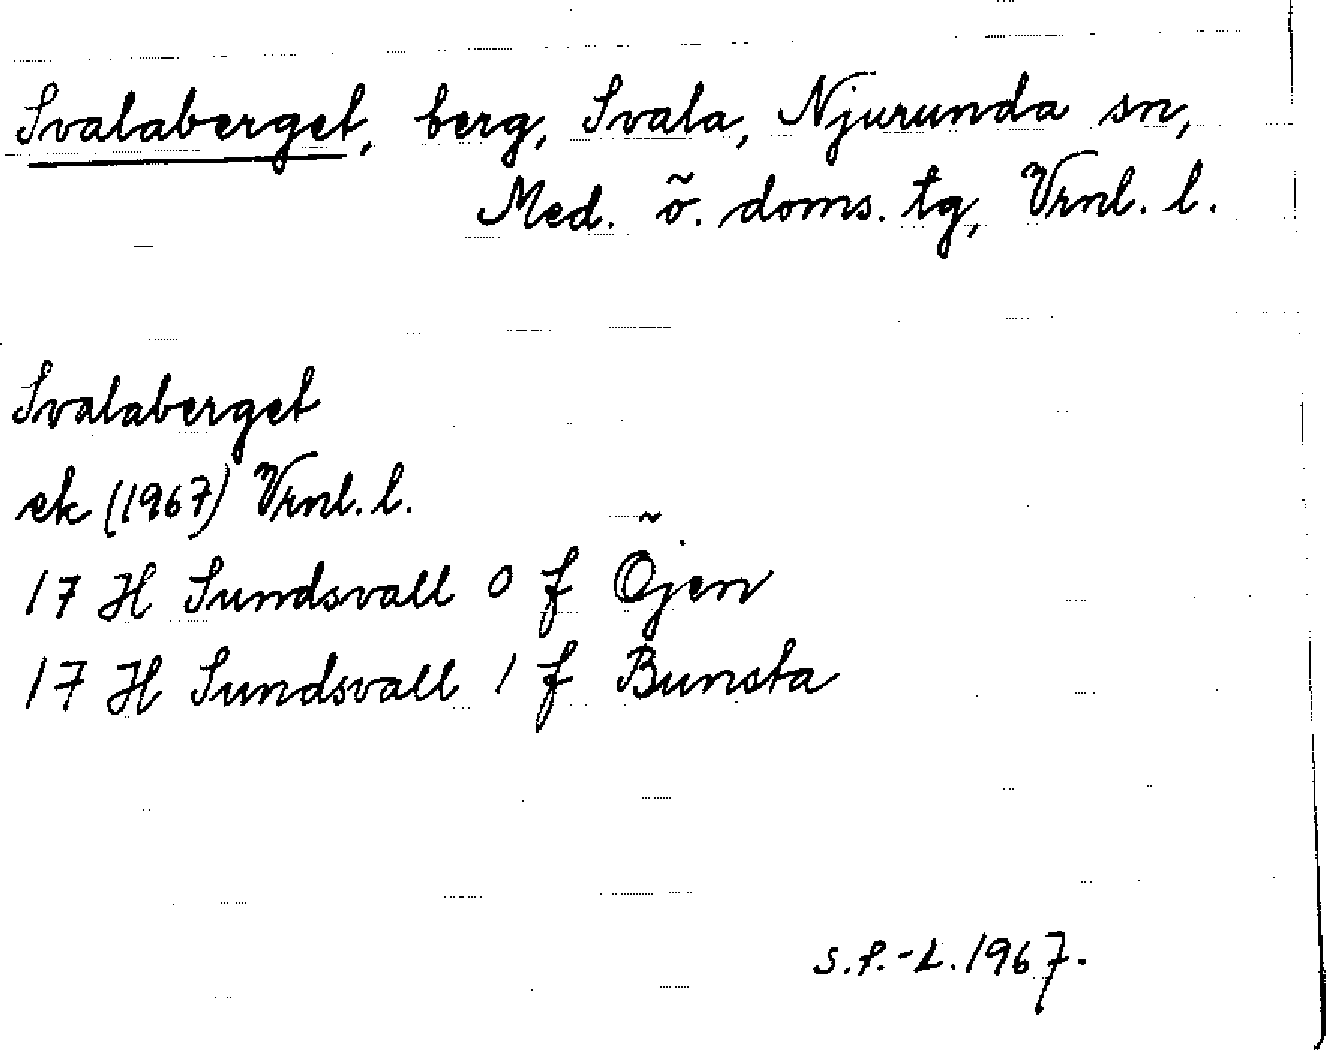 Svalaberget, berg, Svala, Njurunda sn,
Med. ö. doms. tg, Vrnl. l.
Svalaberget
ek (1967) Vrnl. l.
17 H Sundsvall 0 f Öjen
17 H Sundsvall 1 f Bunsta
S.F.-L. 1967.